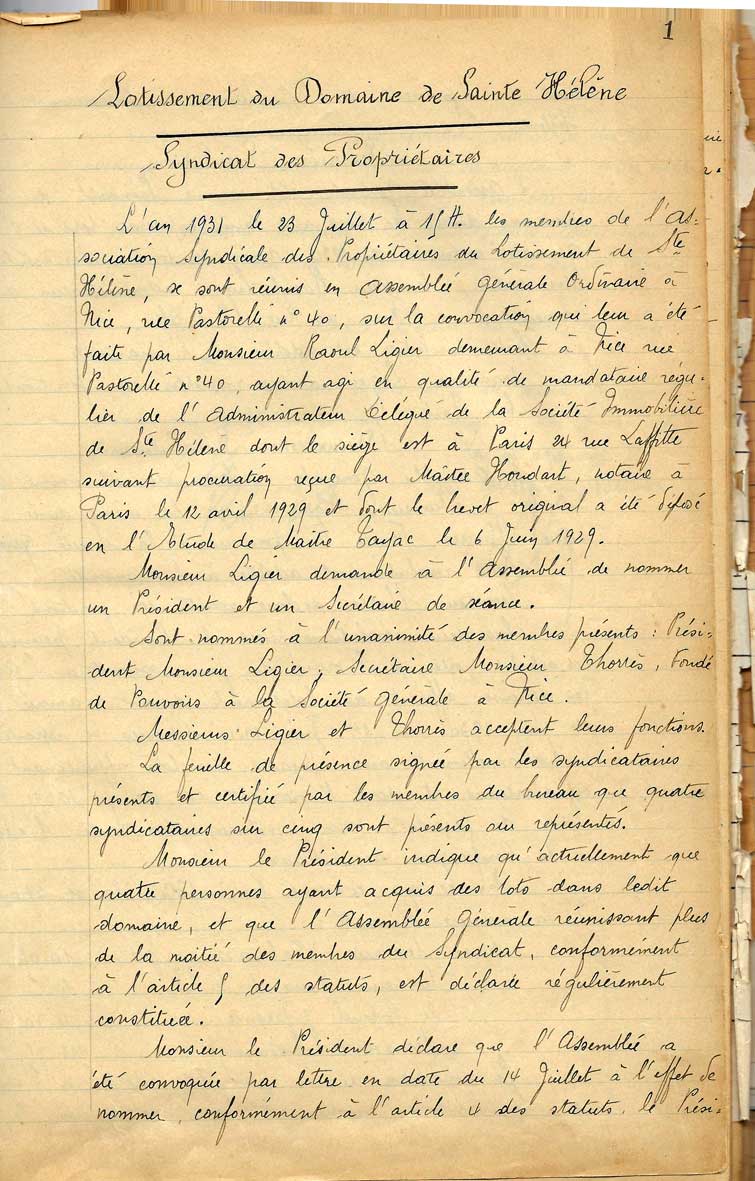 1
Lotissement du Domaine de Sainte Hélène
Syndicat des Propriétaires
L'an 1931 le 23 Juillet à 15 H. les membres de l'As-
sociation Syndicale des Propriétaires du Lotissement de Ste
Hélène, se sont réunis en Assemblée Générale Ordinaire à
Nice, rue Pastorelli n° 40, sur la convocation qui leur a été
faite par Monsieur Raoul Ligier demeurant à Nice rue
Pastorelli n° 40, ayant agi en qualité de mandataire régu-
lier de l'Administrateur Délégué de la Société Immobilière
de Ste Hélène dont le siège est à Paris 24 rue Laffitte
suivant procuration reçue par Maître Houdart, notaire à
Paris le 12 avril 1929 et dont le brevet original a été déposé
en l'Etude de Maitre Tayac le 6 Juin 1929.
Monsieur Ligier demande à l'Assemblée de nommer
un Président et un Secrétaire de séance.
Sont nommés à l'unanimité des membres présents : Prési-
dent Monsieur Ligier ; Secrétaire Monsieur Thorrès, Fondé
de Pouvoirs à la Société Générale à Nice.
Messieurs Ligier et Thorrès acceptent leurs fonctions.
La feuille de présence signée par les syndicataires
présents et certifié par les membres du bureau que quatre
syndicataires sur cinq sont présents ou représentés.
Monsieur le Président indique qu'actuellement que
quatre personnes ayant acquis des lots dans ledit
domaine, et que l'Assemblée Générale réunissant plus
de la moitié des membres du Syndicat, conformément
à l'article 5 des statuts, est déclarée régulièrement
constituée.
Monsieur le Président déclare que l'Assemblée a
été convoquée par lettre en date du 14 Juillet à l'effet de
nommer, conformément à l'article 4 des statuts, le Prési-